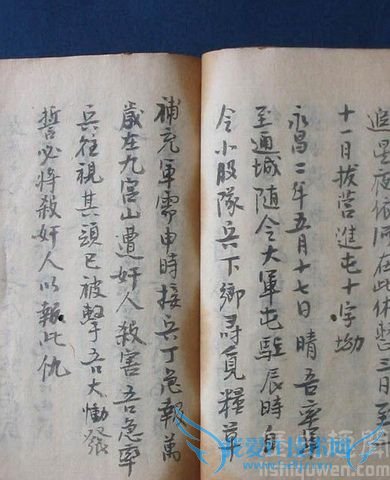 在此休
三日至
十一日拔營進屯十字坳
永昌二年五月十七日晴吾率
至通城随令大軍屯駐辰時
令小股隊兵下鄉尋覓糧草
補充軍需申時接兵丁急報萬
歲在九宮山遭奸人殺害吾急率
兵往視其頭已被擊吾大慟發
誓必將殺奸人以報此仇
lishiquwen.com